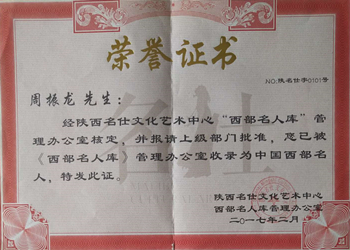 荣誉证书
NO:陕名仕字0101号
周振龙 先生：
经陕西名仕文化艺术中心“西部名人库”管
理办公室核定，并报请上级部门批准，您已被
《西部名人库》管理办公室收录为中国西部名
人，特发此证。
陕西名仕文化艺术中心
西部名人库管理办公室
二〇一七年二月